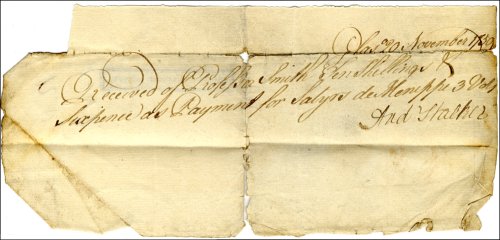 Glasg 20 November 1759
Received of Professor Smith Ten Shillings &
Sixpence as Payment for Satyre de Menippe 3 Vols
And Stalker